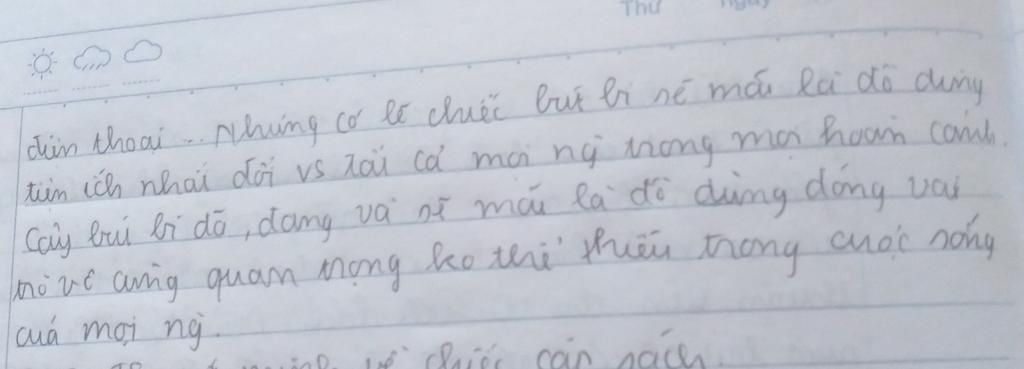 Thứ ngày
điện thoại... Nhưng có lẽ chiếc bút bi sẽ mãi là đồ dùng
tiện ích nhất đối vs tất cả mọi ng trong mọi hoàn cảnh.
Cây bút bi đã, đang và sẽ mãi là đồ dùng đóng vai
trò vô cùng quan trọng ko thể thiếu trong cuộc sống
của mọi ng.
về chiếc cặp sách